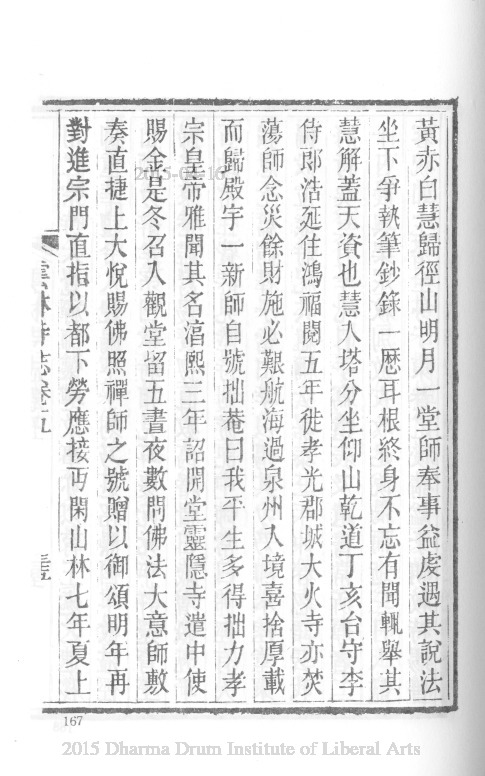 黃赤白慧歸徑山明月一堂師奉事益虔遇其說法
坐下爭執筆鈔錄一歷耳根終身不忘有聞輒舉其
慧解蓋天資也慧入塔分坐仰山乾道丁亥台守李
侍郎浩延住鴻福閱五年徙孝光郡城大火寺亦焚
蕩師念災餘財施必艱航海過泉州入境喜捨厚載
而歸殿宇一新師自號拙菴曰我平生多得拙力孝
宗皇帝雅聞其名湻熙三年詔開堂靈隱寺遣中使
賜金是冬召入觀堂留五晝夜數問佛法大意師敷
奏直捷上大悅賜佛照禪師之號贈以御頌明年再
對進宗門直指以都下勞應接丐閑山林七年夏上
雲林寺志卷五
167
2015-04-16
2015 Dharma Drum Institute of Liberal Arts